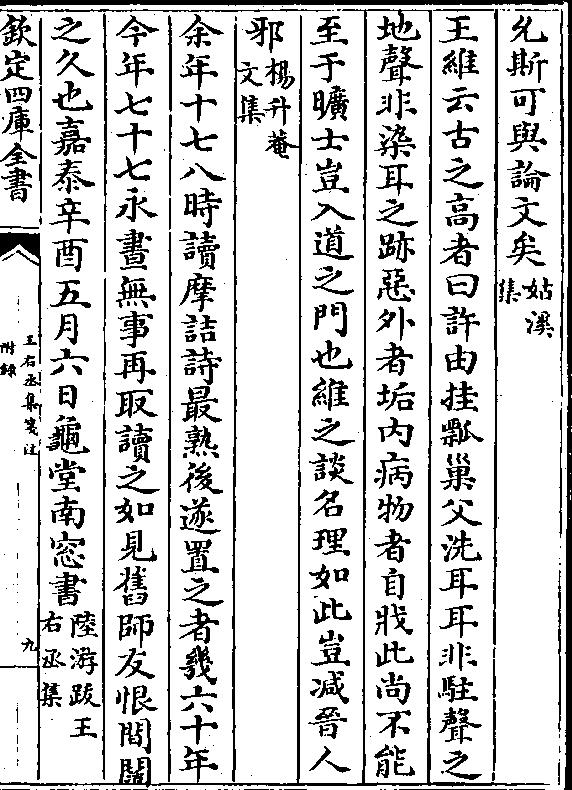 允斯可與論文矣姑溪集
王維云古之高者曰許由挂瓢巢父洗耳耳非駐聲之
地聲非染耳之跡惡外者垢内病物者自戕此尚不能
至于曠士豈入道之門也維之談名理如此豈減晉人
邪楊升菴文集
余年十七八時讀摩詰詩最熟後遂置之者幾六十年
今年七十七永晝無事再取讀之如見舊師友恨間闊
之久也嘉泰辛酉五月六日龜堂南窓書陸游跋王右丞集
欽定四庫全書
王右丞集箋注
附錄
九